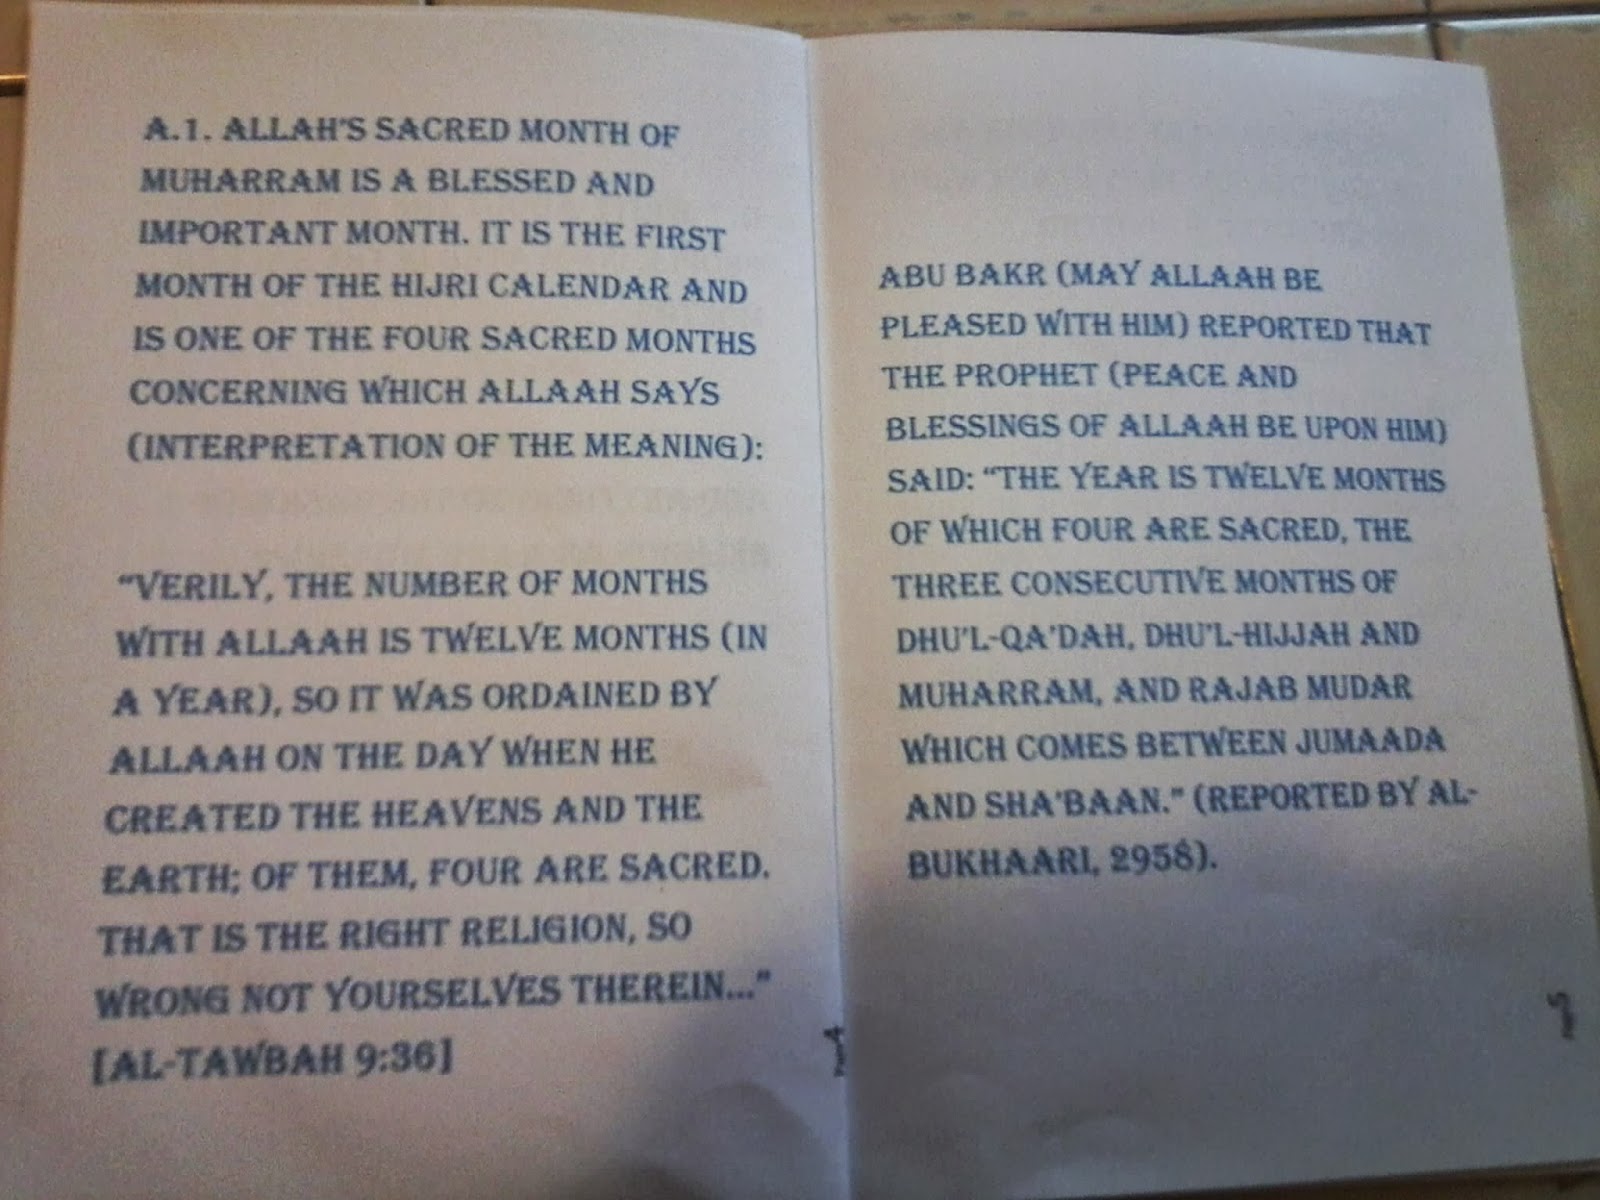 A.1. ALLAH'S SACRED MONTH OF
MUHARRAM IS A BLESSED AND
IMPORTANT MONTH. IT IS THE FIRST
MONTH OF THE HIJRI CALENDAR AND
IS ONE OF THE FOUR SACRED MONTHS
CONCERNING WHICH ALLAAH SAYS
(INTERPRETATION OF THE MEANING):
"VERILY, THE NUMBER OF MONTHS
WITH ALLAAH IS TWELVE MONTHS (IN
A YEAR), SO IT WAS ORDAINED BY
ALLAAH ON THE DAY WHEN HE
CREATED THE HEAVENS AND THE
EARTH; OF THEM, FOUR ARE SACRED.
THAT IS THE RIGHT RELIGION, SO
WRONG NOT YOURSELVES THEREIN..."
[AL-TAWBAH 9:36]
ABU BAKR (MAY ALLAAH BE
PLEASED WITH HIM) REPORTED THAT
THE PROPHET (PEACE AND
BLESSINGS OF ALLAAH BE UPON HIM)
SAID: "THE YEAR IS TWELVE MONTHS
OF WHICH FOUR ARE SACRED, THE
THREE CONSECUTIVE MONTHS OF
DHU'L-QA'DAH, DHU'L-HIJJAH AND
MUHARRAM, AND RAJAB MUDAR
WHICH COMES BETWEEN JUMAADA
AND SHA'BAAN." (REPORTED BY AL-
BUKHAARI, 2958).